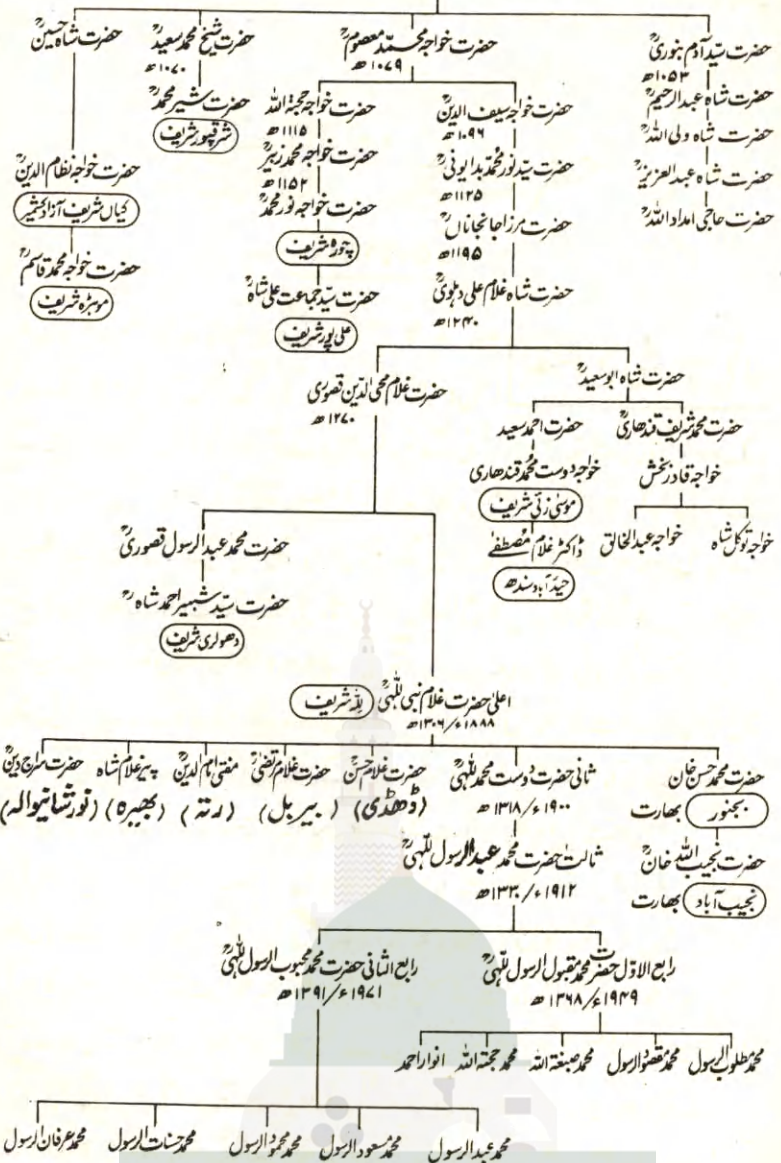 حضرت سید آدم بنوریؒ
۱۰۵۳ھ
حضرت شاہ عبدالرحیمؒ
حضرت شاہ ولی اللہؒ
حضرت شاہ عبدالعزیزؒ
حضرت حاجی امداد اللہؒ
حضرت خواجہ محمد معصومؒ
۱۰۷۹ھ
حضرت خواجہ سیف الدینؒ
۱۰۹۶ھ
حضرت سید نور محمد بدایونیؒ
۱۱۲۵ھ
حضرت مرزا جانجاناںؒ
۱۱۹۵ھ
حضرت شاہ غلام علی دہلویؒ
۱۲۴۰ھ
حضرت خواجہ حجۃ اللہ
۱۱۱۵ھ
حضرت خواجہ محمد زبیرؒ
۱۱۵۲ھ
حضرت خواجہ نور محمدؒ
چورہ شریف
حضرت سید جماعت علی شاہؒ
علی پور شریف
حضرت شیخ محمد سعیدؒ
۱۰۷۰ھ
حضرت شیر محمدؒ
شرقپور شریف
حضرت شاہ حسینؒ
حضرت خواجہ نظام الدینؒ
کیاں شریف آزاد کشمیر
حضرت خواجہ محمد قاسمؒ
موہڑہ شریف
حضرت شاہ ابو سعیدؒ
حضرت محمد شریف قندھاریؒ
خواجہ قادر بخش
خواجہ توکل شاہ
خواجہ عبدالخالق
حضرت احمد سعید
خواجہ دوست محمد قندھاری
موسیٰ زئی شریف
ڈاکٹر غلام مصطفےٰ
حیدرآباد سندھ
حضرت غلام محی الدین قصوری
۱۲۷۰ھ
حضرت محمد عبدالرسول قصوریؒ
حضرت سید شبیر احمد شاہؒ
دھولری شریف
اعلیٰ حضرت غلام نبی للٰہیؒ للّٰہ شریف
۱۸۸۸ء/۱۳۰۶ھ
حضرت محمد حسن خان
بجنور بھارت
حضرت نجیب اللہ خانؒ
نجیب آباد بھارت
ثانی حضرت دوست محمد للٰہیؒ
۱۹۰۰ء/۱۳۱۸ھ
ثالث حضرت محمد عبدالرسول للٰہیؒ
۱۹۱۲ء/۱۳۳۰ھ
حضرت غلام حسنؒ
(ڈھڈی)
حضرت غلام مرتضیٰؒ
(بیربل)
مفتی امام الدینؒ
(رتہ)
پیر غلام شاہ
(بھیرہ)
حضرت سراج دینؒ
(نورشانیوالہ)
رابع الاوّل حضرت محمد مقبول الرسول للٰہیؒ
۱۹۴۹ء/۱۳۶۸ھ
رابع الثانی حضرت محمد محبوب الرسول للٰہیؒ
۱۹۷۱ء/۱۳۹۱ھ
محمد مطلوب الرسول محمد مقصود الرسول محمد صبغۃ اللہ محمد حجۃ اللہ انوار احمد
محمد عبدالرسول محمد مسعود الرسول محمد محمود الرسول محمد حسنات الرسول محمد عرفان الرسول